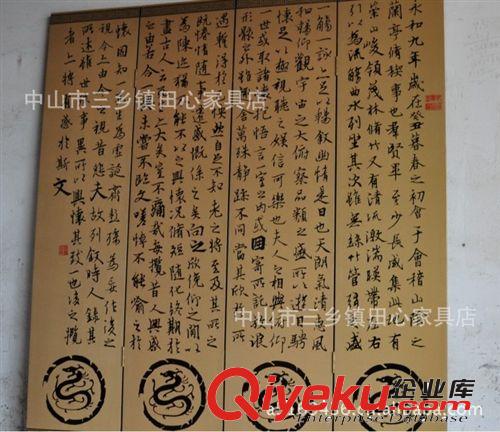 永和九年歲在癸丑暮春之初會于會稽山陰之
蘭亭脩稧事也羣賢畢至少長咸集此地有
崇山峻領茂林脩竹又有清流激湍暎帶左右
引以為流觴曲水列坐其次雖無絲竹管弦之盛
一觴一詠亦足以暢敘幽情是日也天朗氣清惠風
和暢仰觀宇宙之大俯察品類之盛所以遊目騁
懷足以極視聽之娛信可樂也夫人之相與俯仰
一世或取諸懷抱悟言一室之內或因寄所託放浪
形骸之外雖趣舍萬殊靜躁不同當其欣於所
遇暫得於己快然自足不知老之將至及其所之
既惓情隨事遷感慨係之矣向之所欣俛仰之間以
為陳迹猶不能不以之興懷況脩短隨化終期於
盡古人云死生亦大矣豈不痛哉每攬昔人興感
之由若合一契未嘗不臨文嗟悼不能喻之於
懷固知一死生為虛誕齊彭殤為妄作後之
視今亦由今之視昔悲夫故列敘時人錄其
所述雖世殊事異所以興懷其致一也後之攬
者亦將有感於斯文
中山市三乡镇田心家具店
中山市三乡镇田心家具店
Qiyeku.com 企业库
Enterprise Database